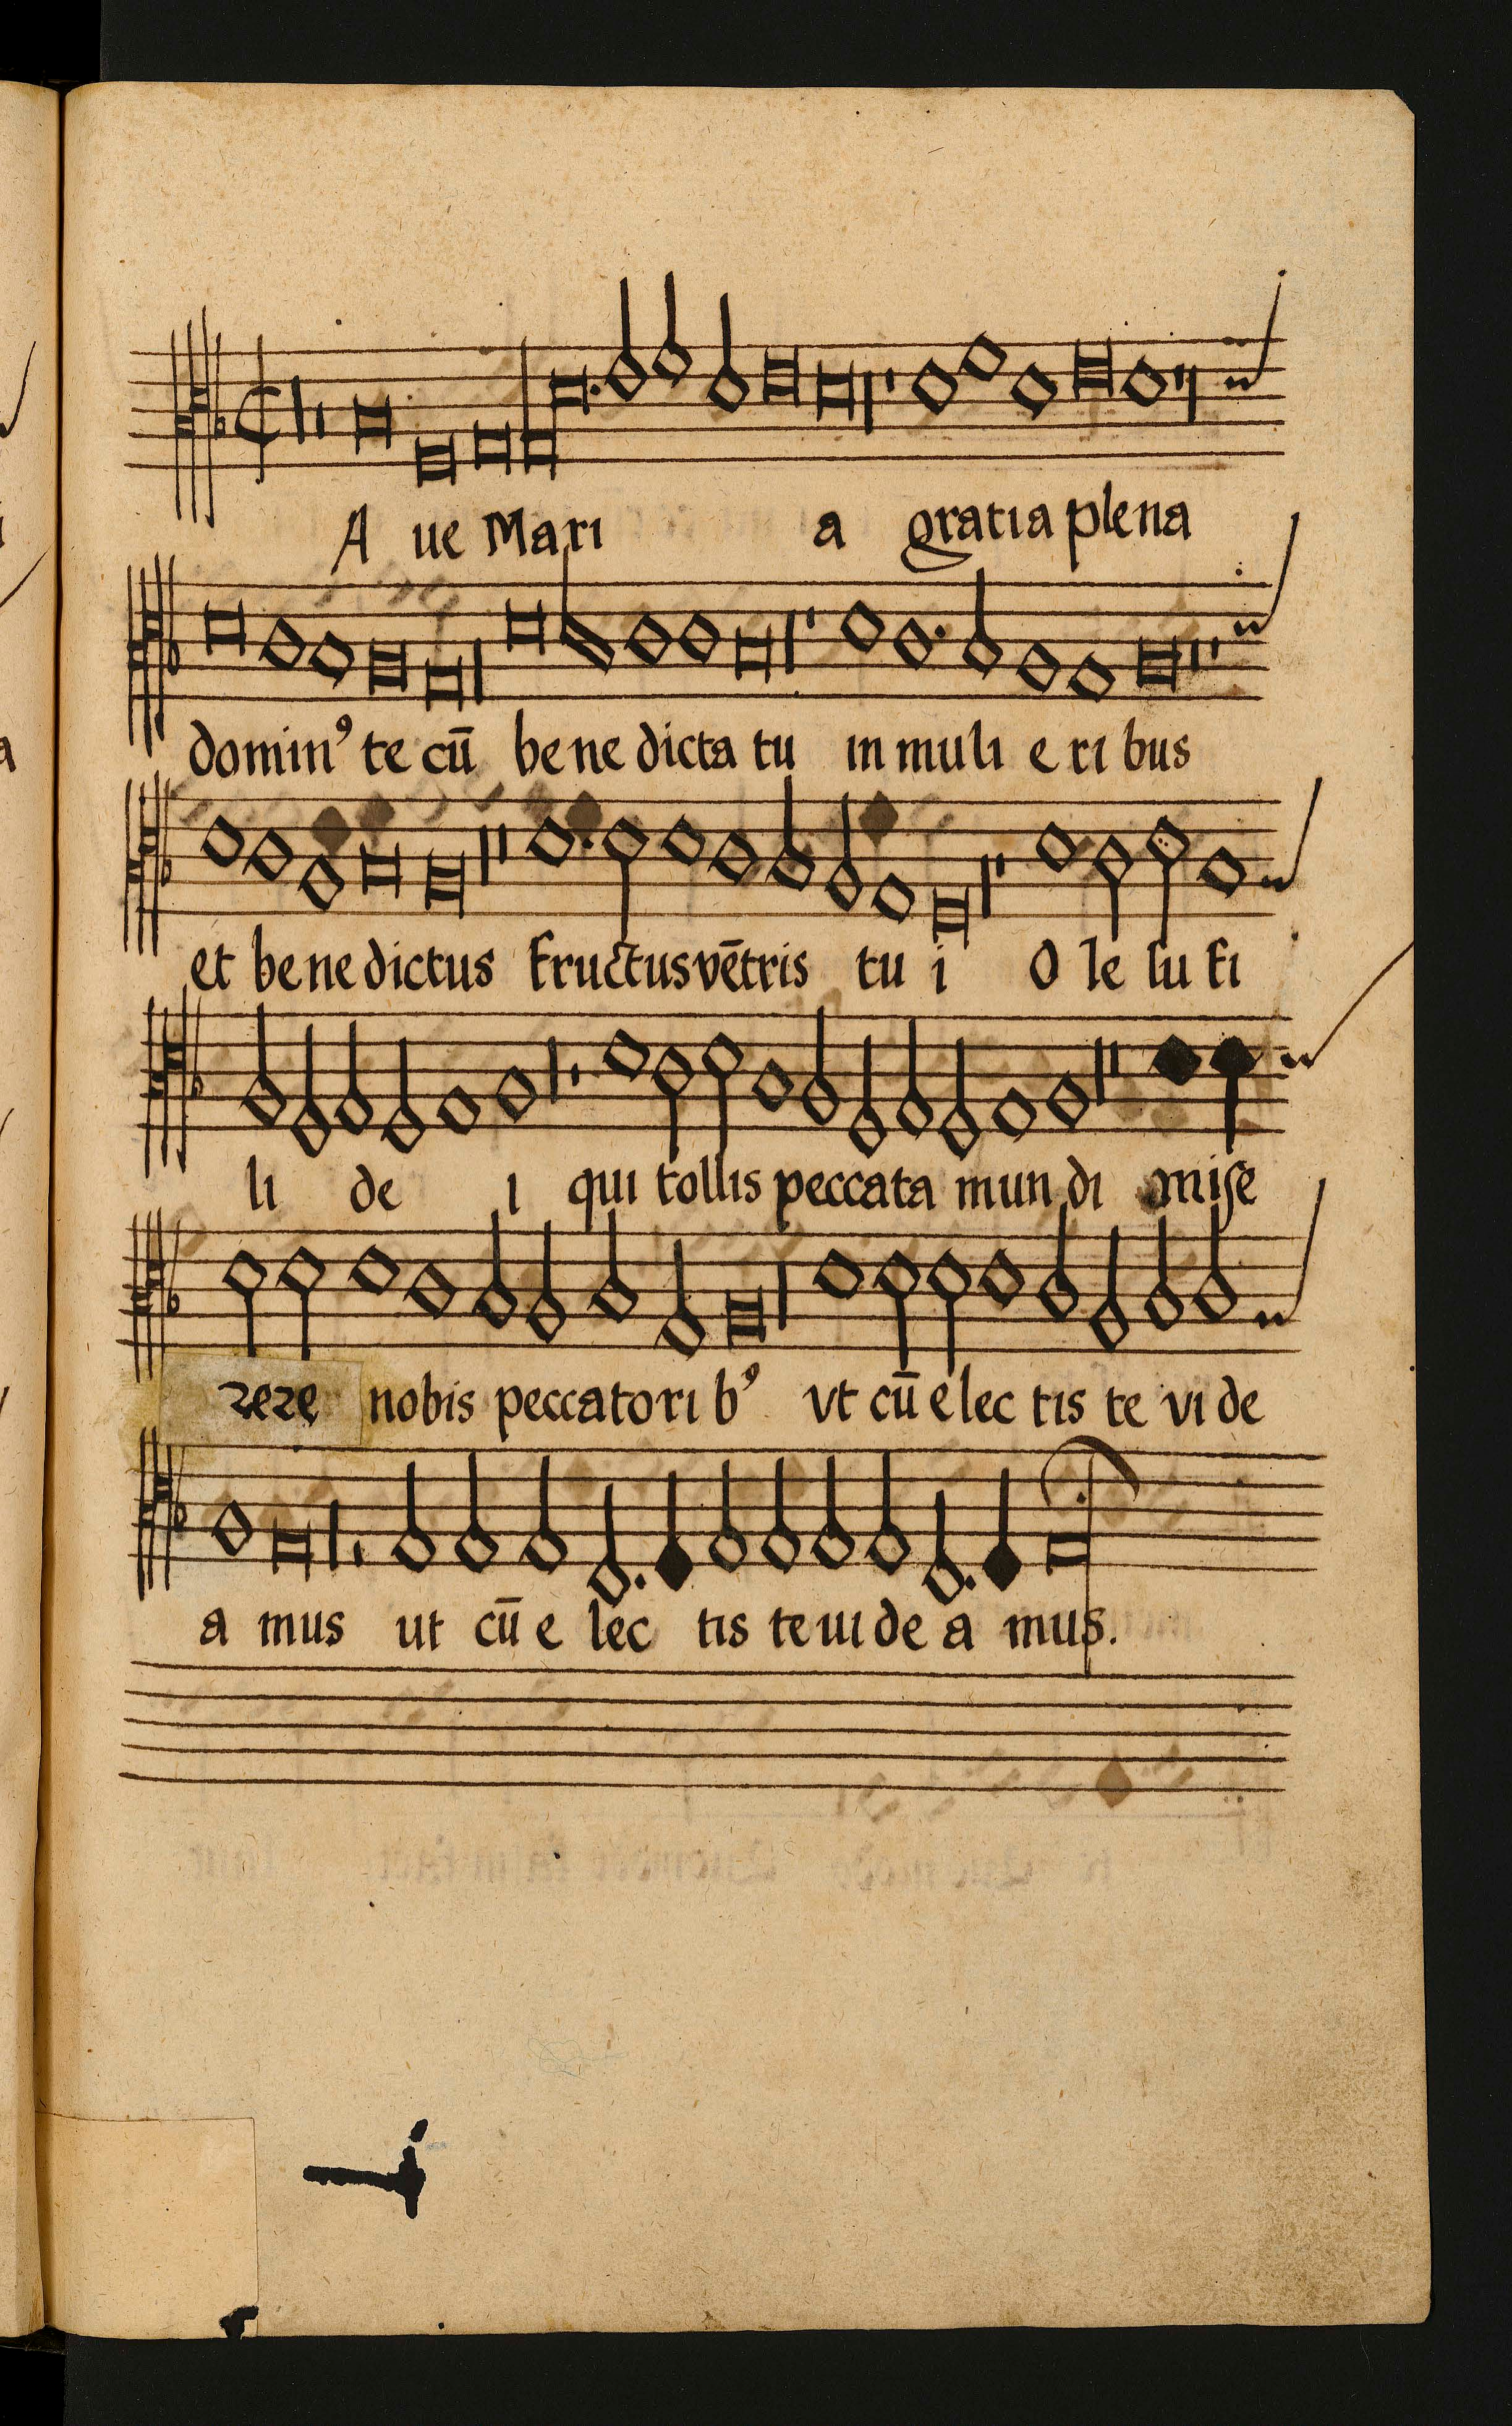 A ue Mari a gratia plena
domin⁹ te cū be ne dicta tu in muli e ri bus
et be ne dictus fructus vētris tu i O Iesu fi
li de i qui tollis peccata mun di mise
rere nobis peccatori b⁹ vt cū e lec tis te vi de
a mus ut cū e lec tis te ui de a mus.